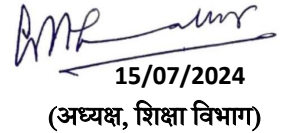 15/07/2024
(अध्यक्ष, शिक्षा विभाग)